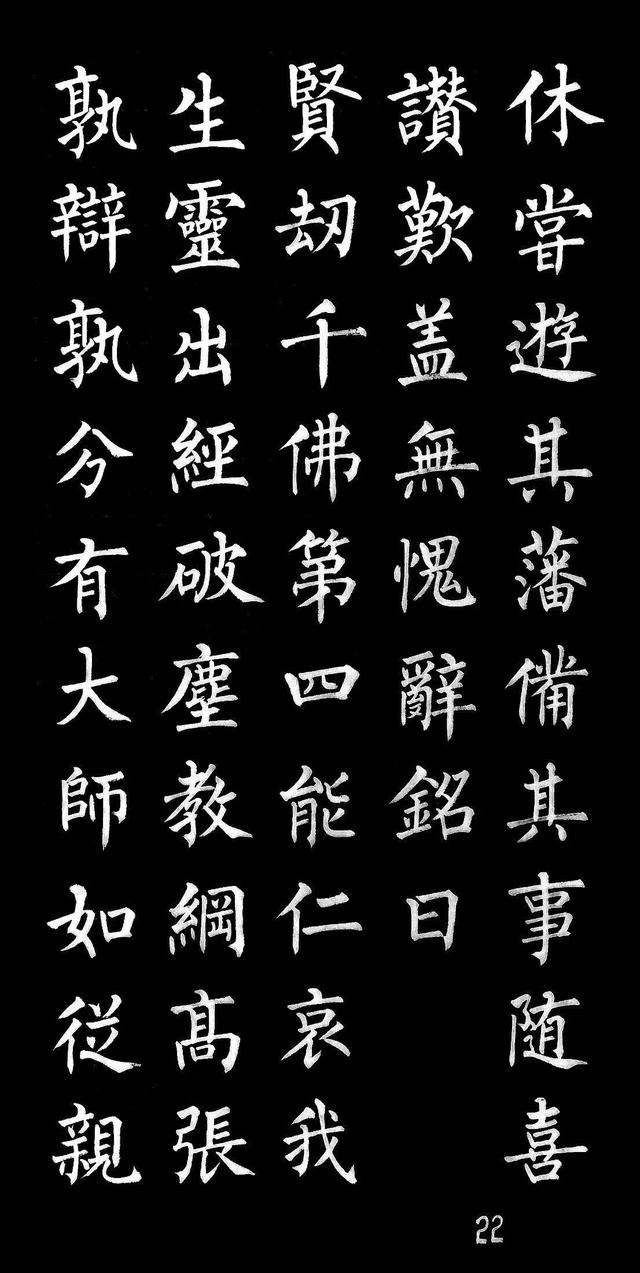 休甞遊其藩備其事随喜
讃歎盖無愧辭銘曰
賢劫千佛第四能仁哀我
生靈出經破塵教綱高張
孰辯孰分有大師如從親
22